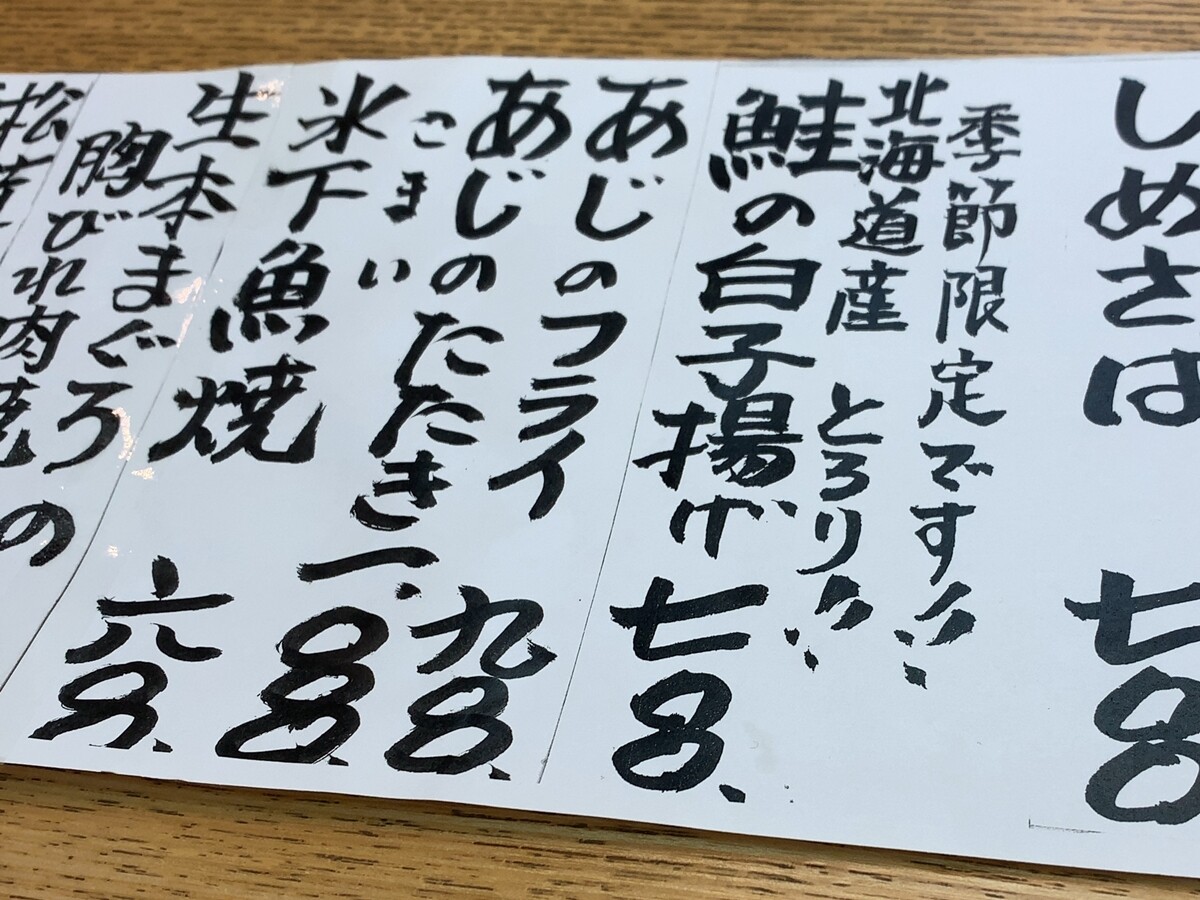 しめさば 七〇〇
季節限定です!!
北海道産 とろり!!
鮭の白子揚げ 七〇〇、
あじのフライ 九〇〇、
あじのたたき 一、〇〇〇、
こまい
氷下魚焼 六〇〇、
生本まぐろの
胸びれ肉焼